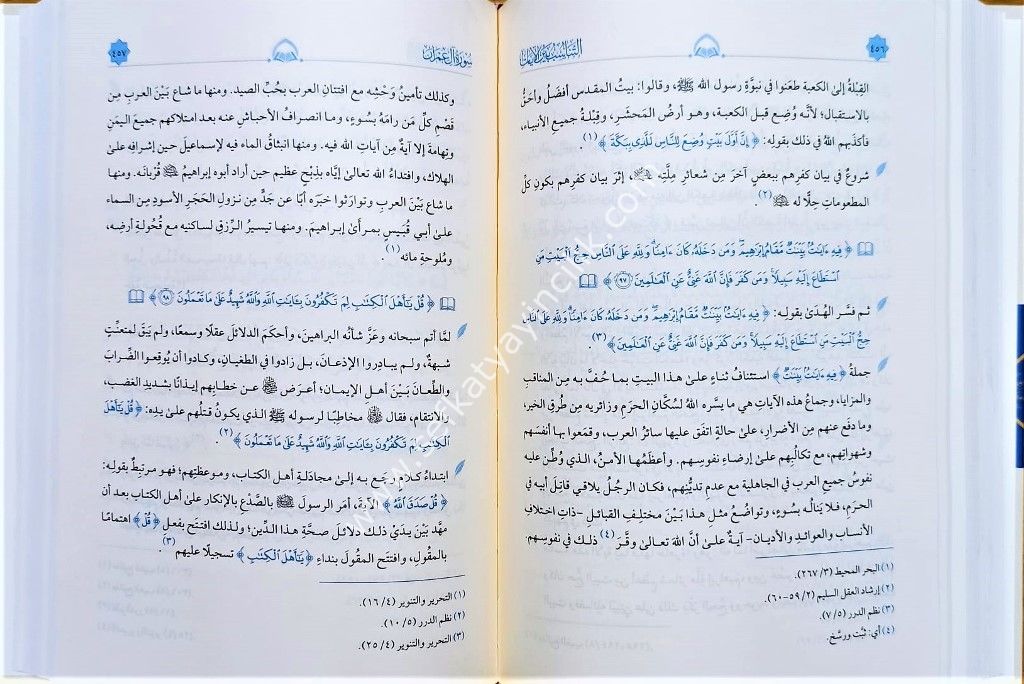 ٤٥٦
التناسب بين الآيات
القِبْلة إلى الكعبة طعَنوا في نبوَّةِ رسول الله ﷺ، وقالوا: بيتُ المقدس أفضلُ وأحَقُّ
بالاستقبال؛ لأنَّه وُضِع قبل الكعبة، وهو أرضُ المَحشَر، وقِبْلةُ جميعِ الأنبياء،
فأكذَبهم اللهُ في ذلك بقوله: ﴿إِنَّ أَوَّلَ بَيْتٍ وُضِعَ لِلنَّاسِ لَلَّذِي بِبَكَّةَ﴾(١).
شروعٌ في بيان كفرِهم ببعضٍ آخرَ مِن شعائرِ ملَّتِه ﷺ، إثرَ بيان كفرِهم بكونِ كلِّ
المطعومات حِلًّا له ﷺ(٢).
﴿فِيهِ ءَايَٰتٌۢ بَيِّنَٰتٌ مَّقَامُ إِبْرَٰهِيمَ وَمَن دَخَلَهُۥ كَانَ ءَامِنًا وَلِلَّهِ عَلَى النَّاسِ حِجُّ الْبَيْتِ مَنِ
اسْتَطَاعَ إِلَيْهِ سَبِيلًا وَمَن كَفَرَ فَإِنَّ اللَّهَ غَنِيٌّ عَنِ الْعَٰلَمِينَ ٩٧﴾
ثم فسَّر الهُدَىٰ بقوله: ﴿فِيهِ ءَايَٰتٌۢ بَيِّنَٰتٌ مَّقَامُ إِبْرَٰهِيمَ وَمَن دَخَلَهُۥ كَانَ ءَامِنًا وَلِلَّهِ عَلَى النَّاسِ
حِجُّ الْبَيْتِ مَنِ اسْتَطَاعَ إِلَيْهِ سَبِيلًا وَمَن كَفَرَ فَإِنَّ اللَّهَ غَنِيٌّ عَنِ الْعَٰلَمِينَ﴾(٣).
جملةُ ﴿فِيهِ ءَايَٰتٌۢ بَيِّنَٰتٌ﴾ استئنافُ ثناءٍ علىٰ هذا البيتِ بما حُفَّ به مِن المناقبِ
والمزايا، وجماعُ هذه الآياتِ هي ما يسَّره اللهُ لسُكَّانِ الحرَمِ وزائريه مِن طرُقِ الخير،
وما دفَع عنهم مِن الأضرار، علىٰ حالةٍ اتفَق عليها سائرُ العرب، وقمَعوا بها أنفسَهم
وشهواتِهم، مع تكالُبِهم علىٰ إرضاءِ نفوسِهم. وأعظَمُها الأمنُ، الذي وُطِّن عليه
نفوسُ جميعِ العرب في الجاهلية مع عدمِ تديُّنِهم، فكان الرجُلُ يلاقي قاتِلَ أبيه في
الحرَم، فلا يَنالُه بسُوءٍ، وتواضُعُ مثلِ هذا بَيْنَ مختلِفِ القبائل -ذاتِ اختلافِ
الأنساب والعوائدِ والأديان- آيةٌ علىٰ أنَّ الله تعالىٰ وقَّرَ(٤) ذلك في نفوسِهم.
(١) البحر المحيط (٣/ ٢٦٧).
(٢) إرشاد العقل السليم (٢/ ٥٩-٦٠).
(٣) نظم الدرر (٥/ ٧).
(٤) أي: ثبَّت ورسَّخ.
سورة آل عمران
٤٥٧
وكذلك تأمينُ وَحْشِه مع افتتانِ العرب بحُبِّ الصيد. ومنها ما شاع بَيْنَ العربِ مِن
قَصْمِ كلِّ مَن رامَهُ بسُوءٍ، وما انصرافُ الأحباشِ عنه بعد امتلاكِهم جميعَ اليمَنِ
وتِهامةَ إلا آيةٌ مِن آياتِ الله فيه. ومنها انبثاقُ الماءِ فيه لإسماعيلَ حين إشرافِه علىٰ
الهلاك، وافتداءُ الله تعالىٰ إيَّاه بذِبْحٍ عظيم حين أراد أبوه إبراهيمُ ﷺ قُرْبانَه. ومنها
ما شاع بَيْنَ العربِ وتوارَثوا خبَرَه أبًا عن جَدٍّ مِن نزولِ الحَجَرِ الأسودِ مِن السماء
علىٰ أبي قُبَيسٍ بمرأَىٰ إبراهيمَ. ومنها تيسيرُ الرِّزقِ لساكنيه مع قُحُولةِ أرضِه،
ومُلوحةِ مائه(١).
﴿قُلْ يَٰٓأَهْلَ الْكِتَٰبِ لِمَ تَكْفُرُونَ بِـَٔايَٰتِ اللَّهِ وَاللَّهُ شَهِيدٌ عَلَىٰ مَا تَعْمَلُونَ ٩٨﴾
لمَّا أتم سبحانه وعَزَّ شأنُه البراهينَ، وأحكَمَ الدلائلَ عقلًا وسمعًا، ولم يَبقَ لمتعنِّتٍ
شبهةٌ، ولم يبادِروا الإذعانَ، بل زادوا في الطغيان، وكادوا أن يُوقِعوا الضِّرابَ
والطِّعانَ بَيْنَ أهلِ الإيمان؛ أعرَضَ ﷻ عن خطابِهم إيذانًا بشديدِ الغضب،
والانتقام، فقال ﷻ مخاطِبًا لرسوله ﷺ الذي يكونُ قتلُهم علىٰ يدِه: ﴿قُلْ يَٰٓأَهْلَ
الْكِتَٰبِ لِمَ تَكْفُرُونَ بِـَٔايَٰتِ اللَّهِ وَاللَّهُ شَهِيدٌ عَلَىٰ مَا تَعْمَلُونَ﴾(٢).
ابتداءُ كلامٍ رجَع به إلىٰ مجادَلةِ أهلِ الكتاب، وموعظتِهم؛ فهو مرتبِطٌ بقوله:
﴿قُلْ صَدَقَ اللَّهُ﴾ الآيةَ، أمَر الرسولَ ﷺ بالصَّدْعِ بالإنكار علىٰ أهلِ الكتاب بعد أن
مهَّد بَيْنَ يدَيْ ذلك دلائلَ صحَّةِ هذا الدِّين؛ ولذلك افتتَح بفعلِ ﴿قُلْ﴾ اهتمامًا
بالمقُول، وافتتَح المقُولَ بنداءِ ﴿يَٰٓأَهْلَ الْكِتَٰبِ﴾ تسجيلًا عليهم(٣).
(١) التحرير والتنوير (٤/ ١٦).
(٢) نظم الدرر (٥/ ١٠).
(٣) التحرير والتنوير (٤/ ٢٥).